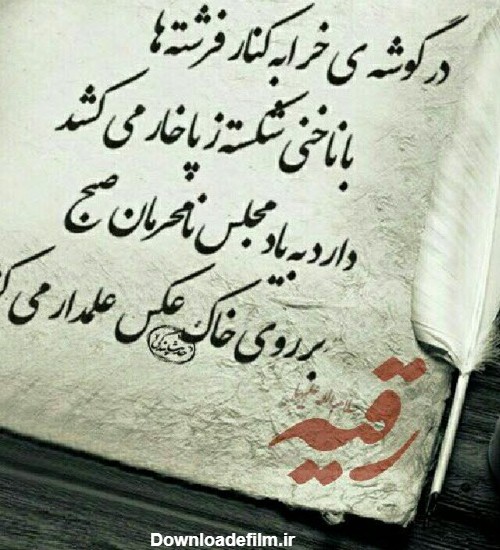 در گوشه ی خرابه کنار فرشته ها
با ناخنی شکسته ز پا خار می کشد
دارد به یاد مجلس نامحرمان صبح
بر روی خاک عکس علمدار می ک
رقیه
سلام الله علیها
Downloadefilm.ir